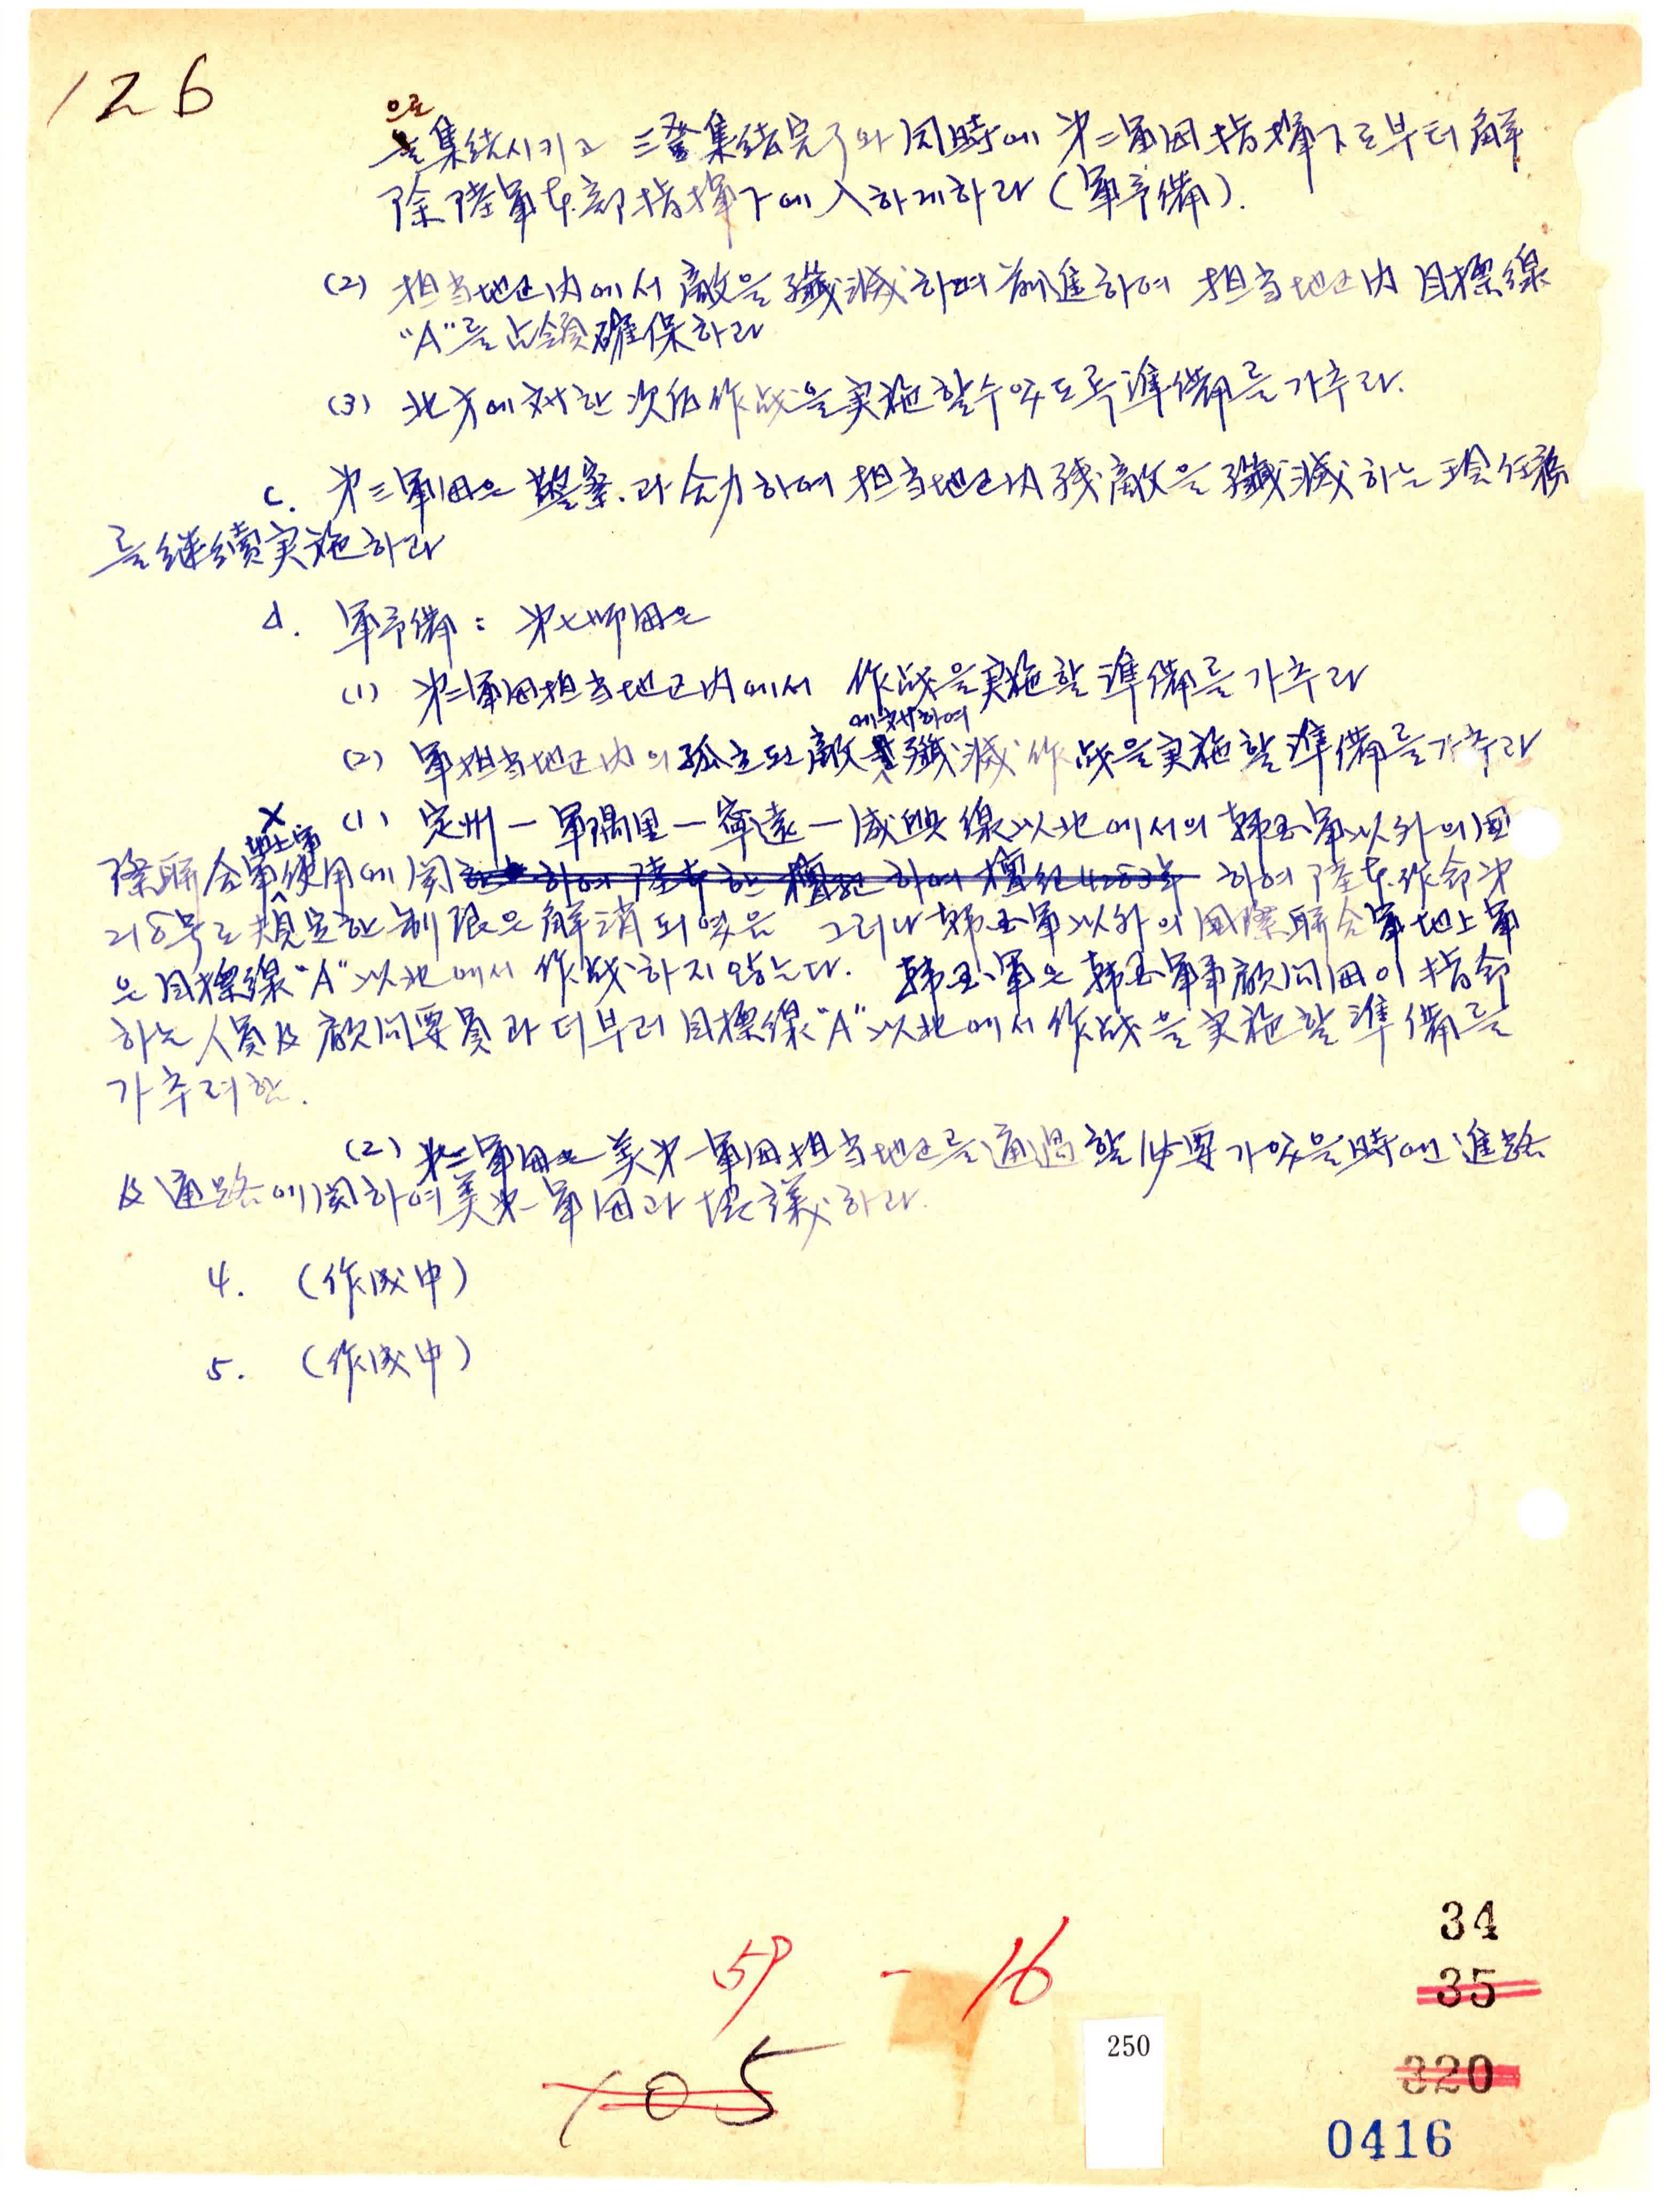 126
으로
集結시키고 三登集結完了와 同時에 第二軍団指揮下로부터 解
除 陸軍本部指揮下에 入하게하라 (軍予備).
(2) 担当地区内에서 敵을 殲滅하며 前進하여 担当地区内 目標線
"A"를 占領確保하라
(3) 北方에 対한 次后作战을 実施할수있도록 準備를 가추라.
c. 第三軍団은 警察과 合力하여 担当地区内 残敵을 殲滅하는 現任務
를 継続実施하라
d. 軍予備: 第七师団은
(1) 第二軍団担当地区内에서 作战을 実施할 準備를 가추라
에 対하여
(2) 軍担当地区内의 孤立된 敵 殲滅作战을 実施할 準備를 가추라
X (1) 定州-軍隅里-寧遠-咸興線 以北에서의 韓国軍以外의 国
地上軍
際聯合軍使用에 関 하여 陸本作命第
218号로 規定한 制限은 解消되였음 그러나 韓国軍以外의 国際聯合軍地上軍
은 目標線 "A" 以北에서 作战하지 않는다. 韓国軍은 韓国軍事顧問団이 指命
하는 人員及 顧問要員과 더부러 目標線 "A" 以北에서 作战을 実施할 準備를
가추려한.
(2) 第二軍団은 美第一軍団担当地区를 通過할 必要가 있을 時에 進路
及 通路에 関하여 美第一軍団과 協議하라.
4. (作成中)
5. (作成中)
34
59 - 16
35
250
105
320
0416